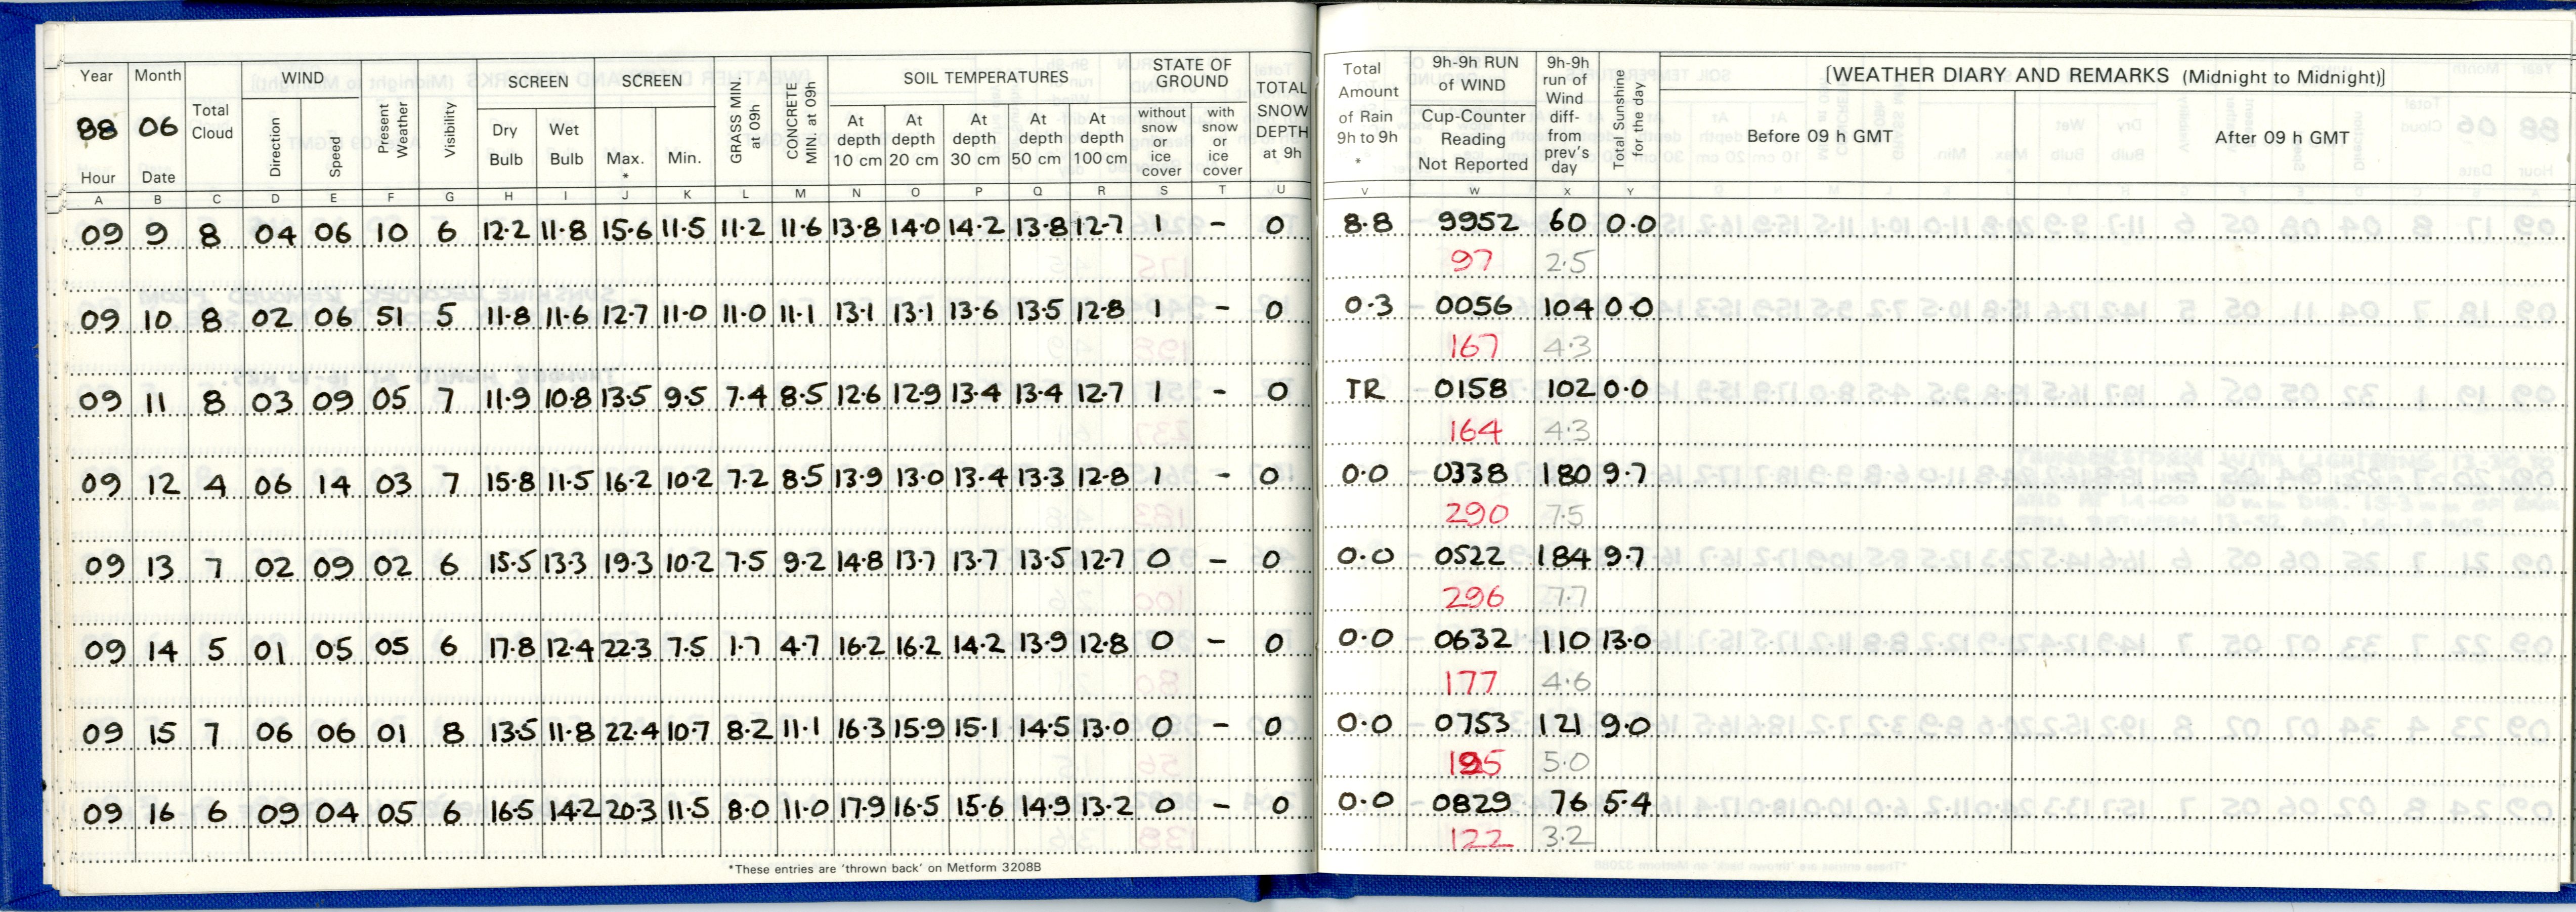 Year Month Total Cloud WIND Present Weather Visibility SCREEN SCREEN GRASS MIN. at 09h CONCRETE MIN at 09h SOIL TEMPERATURES STATE OF GROUND TOTAL SNOW DEPTH at 9h Total Amount of Rain 9h to 9h * 9h-9h RUN of WIND 9h-9h run of Wind diff- from prev's day Total Sunshine for the day [WEATHER DIARY AND REMARKS (Midnight to Midnight)]
88 06 Direction Speed Dry Bulb Wet Bulb Max. * Min. At depth 10 cm At depth 20 cm At depth 30 cm At depth 50 cm At depth 100 cm without snow or ice cover with snow or ice cover Cup-Counter Reading Not Reported Before 09 h GMT After 09 h GMT
Hour Date
A B C D E F G H I J K L M N O P Q R S T U V W X Y
09 9 8 04 06 10 6 12.2 11.8 15.6 11.5 11.2 11.6 13.8 14.0 14.2 13.8 12.7 1 - 0 8.8 9952 60 0.0
97 2.5
09 10 8 02 06 51 5 11.8 11.6 12.7 11.0 11.0 11.1 13.1 13.1 13.6 13.5 12.8 1 - 0 0.3 0056 104 0.0
167 4.3
09 11 8 03 09 05 7 11.9 10.8 13.5 9.5 7.4 8.5 12.6 12.9 13.4 13.4 12.7 1 - 0 TR 0158 102 0.0
164 4.3
09 12 4 06 14 03 7 15.8 11.5 16.2 10.2 7.2 8.5 13.9 13.0 13.4 13.3 12.8 1 - 0 0.0 0338 180 9.7
290 7.5
09 13 7 02 09 02 6 15.5 13.3 19.3 10.2 7.5 9.2 14.8 13.7 13.7 13.5 12.7 0 - 0 0.0 0522 184 9.7
296 7.7
09 14 5 01 05 05 6 17.8 12.4 22.3 7.5 1.7 4.7 16.2 16.2 14.2 13.9 12.8 0 - 0 0.0 0632 110 13.0
177 4.6
09 15 7 06 06 01 8 13.5 11.8 22.4 10.7 8.2 11.1 16.3 15.9 15.1 14.5 13.0 0 - 0 0.0 0753 121 9.0
195 5.0
09 16 6 09 04 05 6 16.5 14.2 20.3 11.5 8.0 11.0 17.9 16.5 15.6 14.9 13.2 0 - 0 0.0 0829 76 5.4
122 3.2
*These entries are 'thrown back' on Metform 3208B